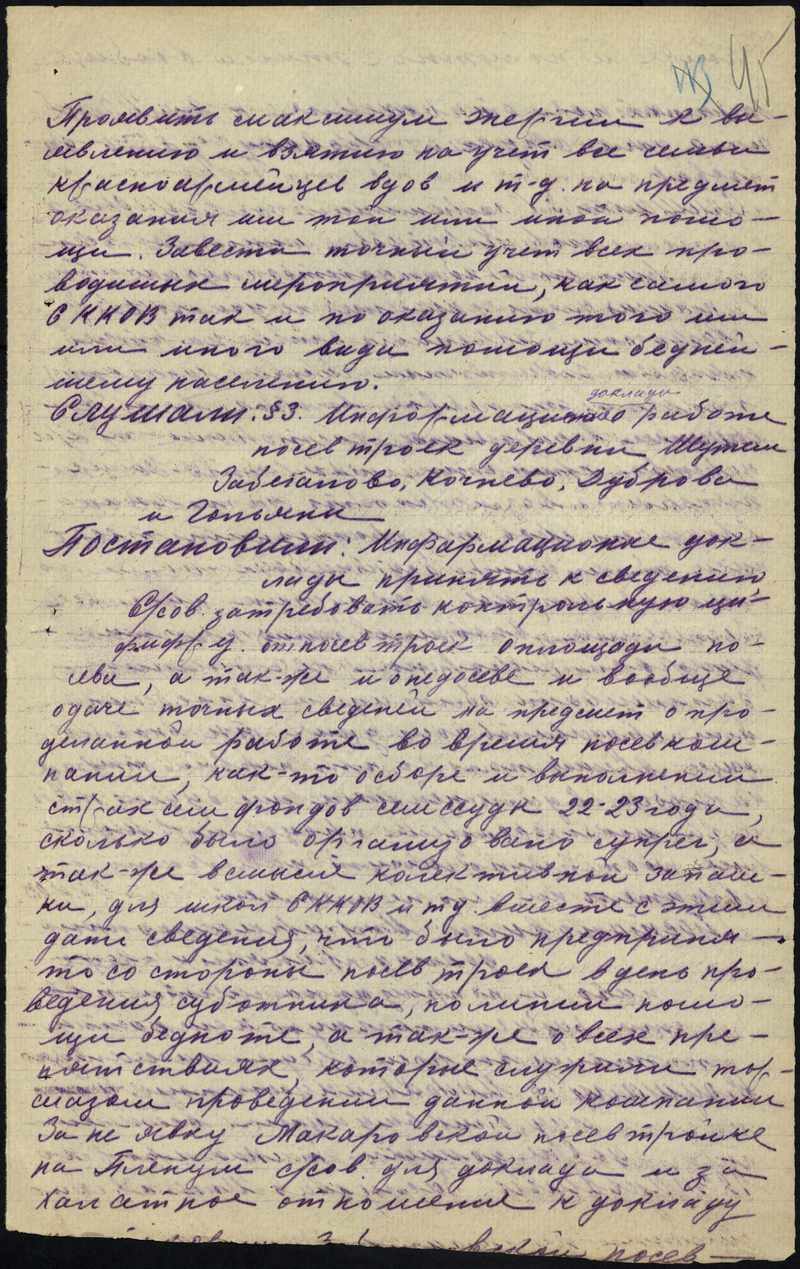 45
Проявить максимум энергии к вы-
явлению и взятию на учет все семьи
красноармейцев вдов и т-д. на предмет
оказания им той или иной помо-
щи. Завести точный учет всех про-
водимых мероприятий, как самого
СККОВ так и по оказанию того или
или иного вида помощи бедней-
шему населению.
доклады
Слушали: §3. Информацион о работе
посев троек деревни Шутем
Забегалово, Кочнево, Дуброва
и Гольяны
Постановили: Информационные док-
лады принять к сведению
затребовать контрольную ци-
от посев троек о площади по-
сева, а так-же и о недосеве и вообще
о даче точных сведений на предмет о про-
деланной работе во время посевком-
пании, как-то о сборе и выполнении
страх сем фондов семссуды 22-23 года,
сколько было организовано супряг, а
так-же в смысле колективной запаш-
ки, для школ СККОВ и тд. вместе с этим
дать сведения, что было предприня-
то со стороны посев троек в день про-
ведения суботника, по линии помо-
щи бедноте, а так-же о всех пре-
пятствиях, которые служили тор-
мазом проведении данной компании
За не явку Макаровской посев тройке
на Пленум для доклада и за
халатное отношение к докладу
посев-